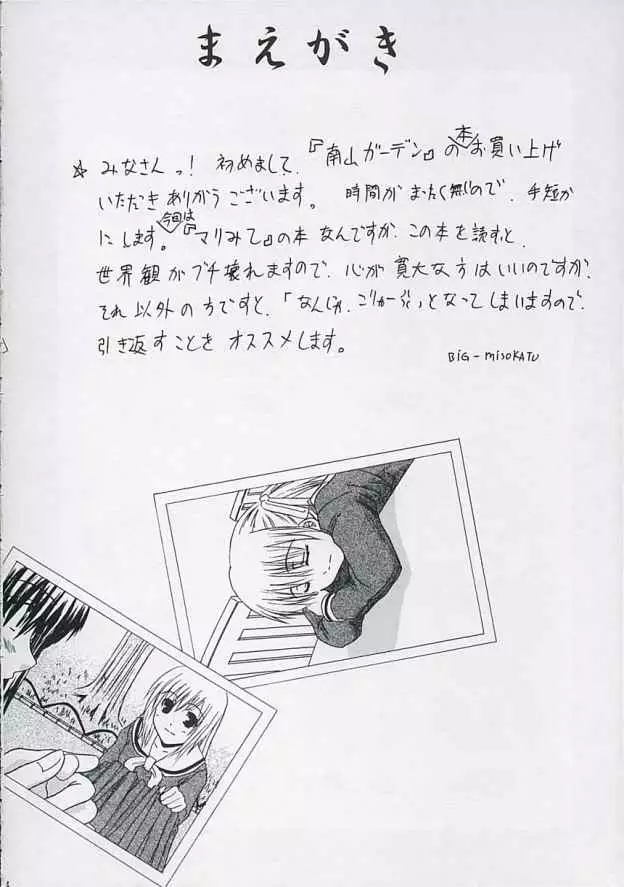 まえがき
☆ みなさんっ! 初めまして、『南山ガーデン』の本お買い上げ
いただきありがとうございます。 時間がまったく無いので、手短か
にします。今回は『マリみて』の本なんですが、この本を読すと、
世界観がブチ壊れますので、心が寛大な方はいいのですが、
それ以外の方ですと、「なんじゃ、こりゃー」となってしまいますので、
引き返すことをオススメします。
BiG-misoKATU